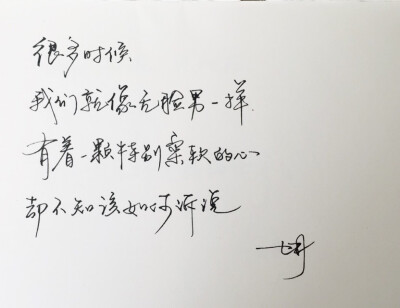 很多时候
我们就像无脸男一样
有着一颗特别柔软的心
却不知该如何诉说